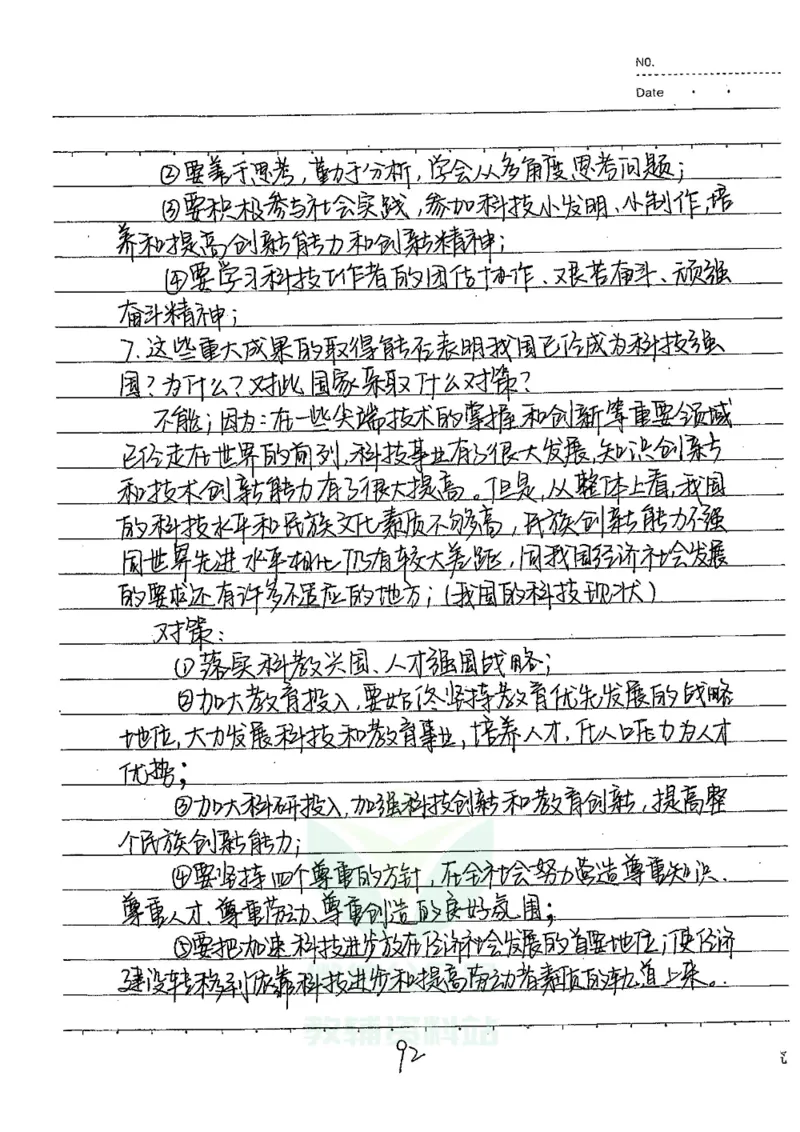 NO.
Date
②要善于思考，勤于分析，学会从多角度思考问题；
③要积极参与社会实践，参加科技小发明、小制作，培
养和提高创新能力和创新精神；
④要学习科技工作者的团结协作、艰苦奋斗、顽强
奋斗精神；
7.这些重大成果的取得能否表明我国已经成为科技强
国？为什么？对此国家采取了什么对策？
不能；因为：在一些尖端技术的掌握和创新等重要领域
已经走在世界的前列，科技事业有了很大发展，知识创新
和技术创新能力有了很大提高。但是，从整体上看，我国
的科技水平和民族文化素质不够高，民族创新能力不强
同世界先进水平相比仍有较大差距，同我国经济社会发展
的要求还有许多不适应的地方；（我国的科技现状）
对策：
①落实科教兴国、人才强国战略；
②加大教育投入，要始终坚持教育优先发展的战略
地位，大力发展科技和教育事业，培养人才，化人口压力为人才
优势；
③加大科研投入，加强科技创新和教育创新，提高整
个民族创新能力；
④要坚持四个尊重的方针，在全社会努力营造尊重知识、
尊重人才、尊重劳动、尊重创造的良好氛围；
⑤要把加速科技进步放在经济社会发展的首要地位，使经济
建设转移到依靠科技进步和提高劳动者素质的轨道上来。
教辅资料站
92